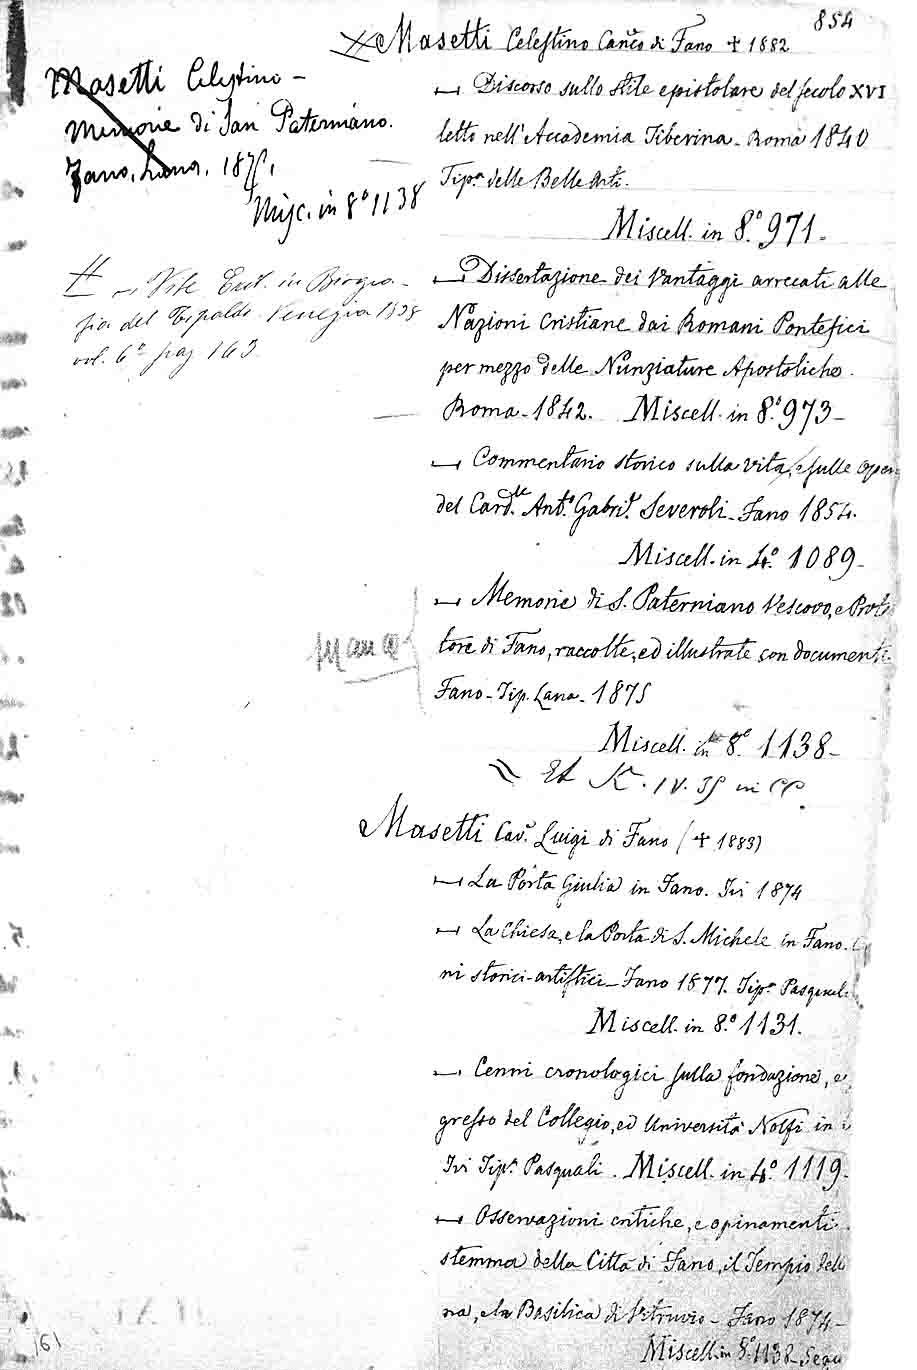 854
Masetti Celestino Can.co di Fano + 1882
Masetti Celestino -
Memorie di San Paterniano.
Fano, Lana. 1875.
Misc. in 8.o 1138
Discorso sullo stile epistolare del secolo XVI
letto nell'Accademia Tiberina - Roma 1840
Tip.a delle Belle Arti.
Miscell. in 8.o 971.
Vite in Biogra-
fia del Tipaldo. Venezia 1838
vol. 6.o pag 163.
Dissertazione dei Vantaggi arrecati alle
Nazioni Cristiane dai Romani Pontefici
per mezzo delle Nunziature Apostoliche.
Roma - 1842. Miscell. in 8.o 973 -
Commentario storico sulla vita, e sulle Oper
del Card.le Ant.o Gabri.l Severoli - Fano 1854.
Miscell. in 4.o 1089 -
Memorie di S. Paterniano Vescovo, e Prot
tore di Fano, raccolte, ed illustrate con documenti.
Fano - Tip. Lana - 1875
manca
Miscell. in 8.o 1138 -
Et K. IV. 35 in CC.
Masetti Cav.r Luigi di Fano (+ 1883)
La Porta Giulia in Fano. Ivi 1874
La Chiesa, e la Porta di S. Michele in Fano. C
ni storici-artistici - Fano 1877. Tip.a Pasqual
Miscell. in 8.o 1131.
Cenni cronologici sulla fondazione, e
gresso del Collegio, ed Università Nolfi in
Ivi Tip.a Pasquali. Miscell. in 4.o 1119 -
Osservazioni critiche, e opinamenti
stemma della Città di Fano, il Tempio dell
na, e la Basilica di Vitruvio - Fano 1874 -
Miscell. in 8.o 1138. Segu
161